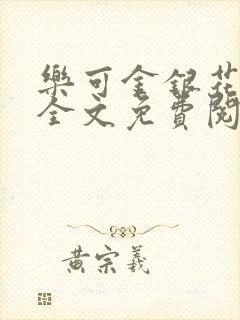 樂可金銀花
全文免費閱
黃宗羲